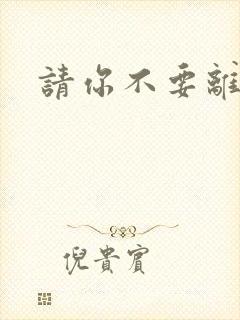 請你不要離
倪貴賓